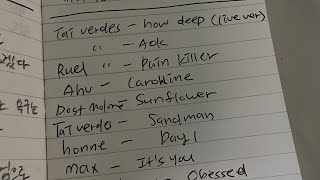 Tai verdes - how deep (live ver)
" - Aok
Ruel - Pain Killer
Ahu - Caroline
Post malone - Sunflower
Tai verdes - Sandman
honne - Day 1
max - It's you
- Obessed